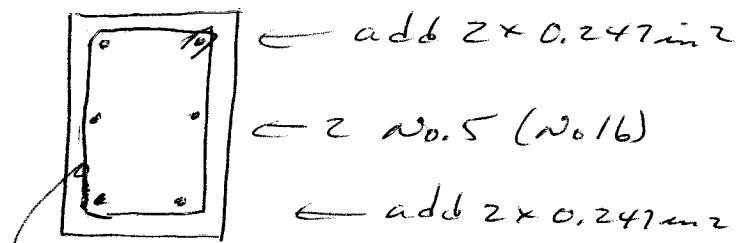 ← add 2 x 0.247 in 2
← 2 No. 5 (No 16)
← add 2 x 0.247 in 2